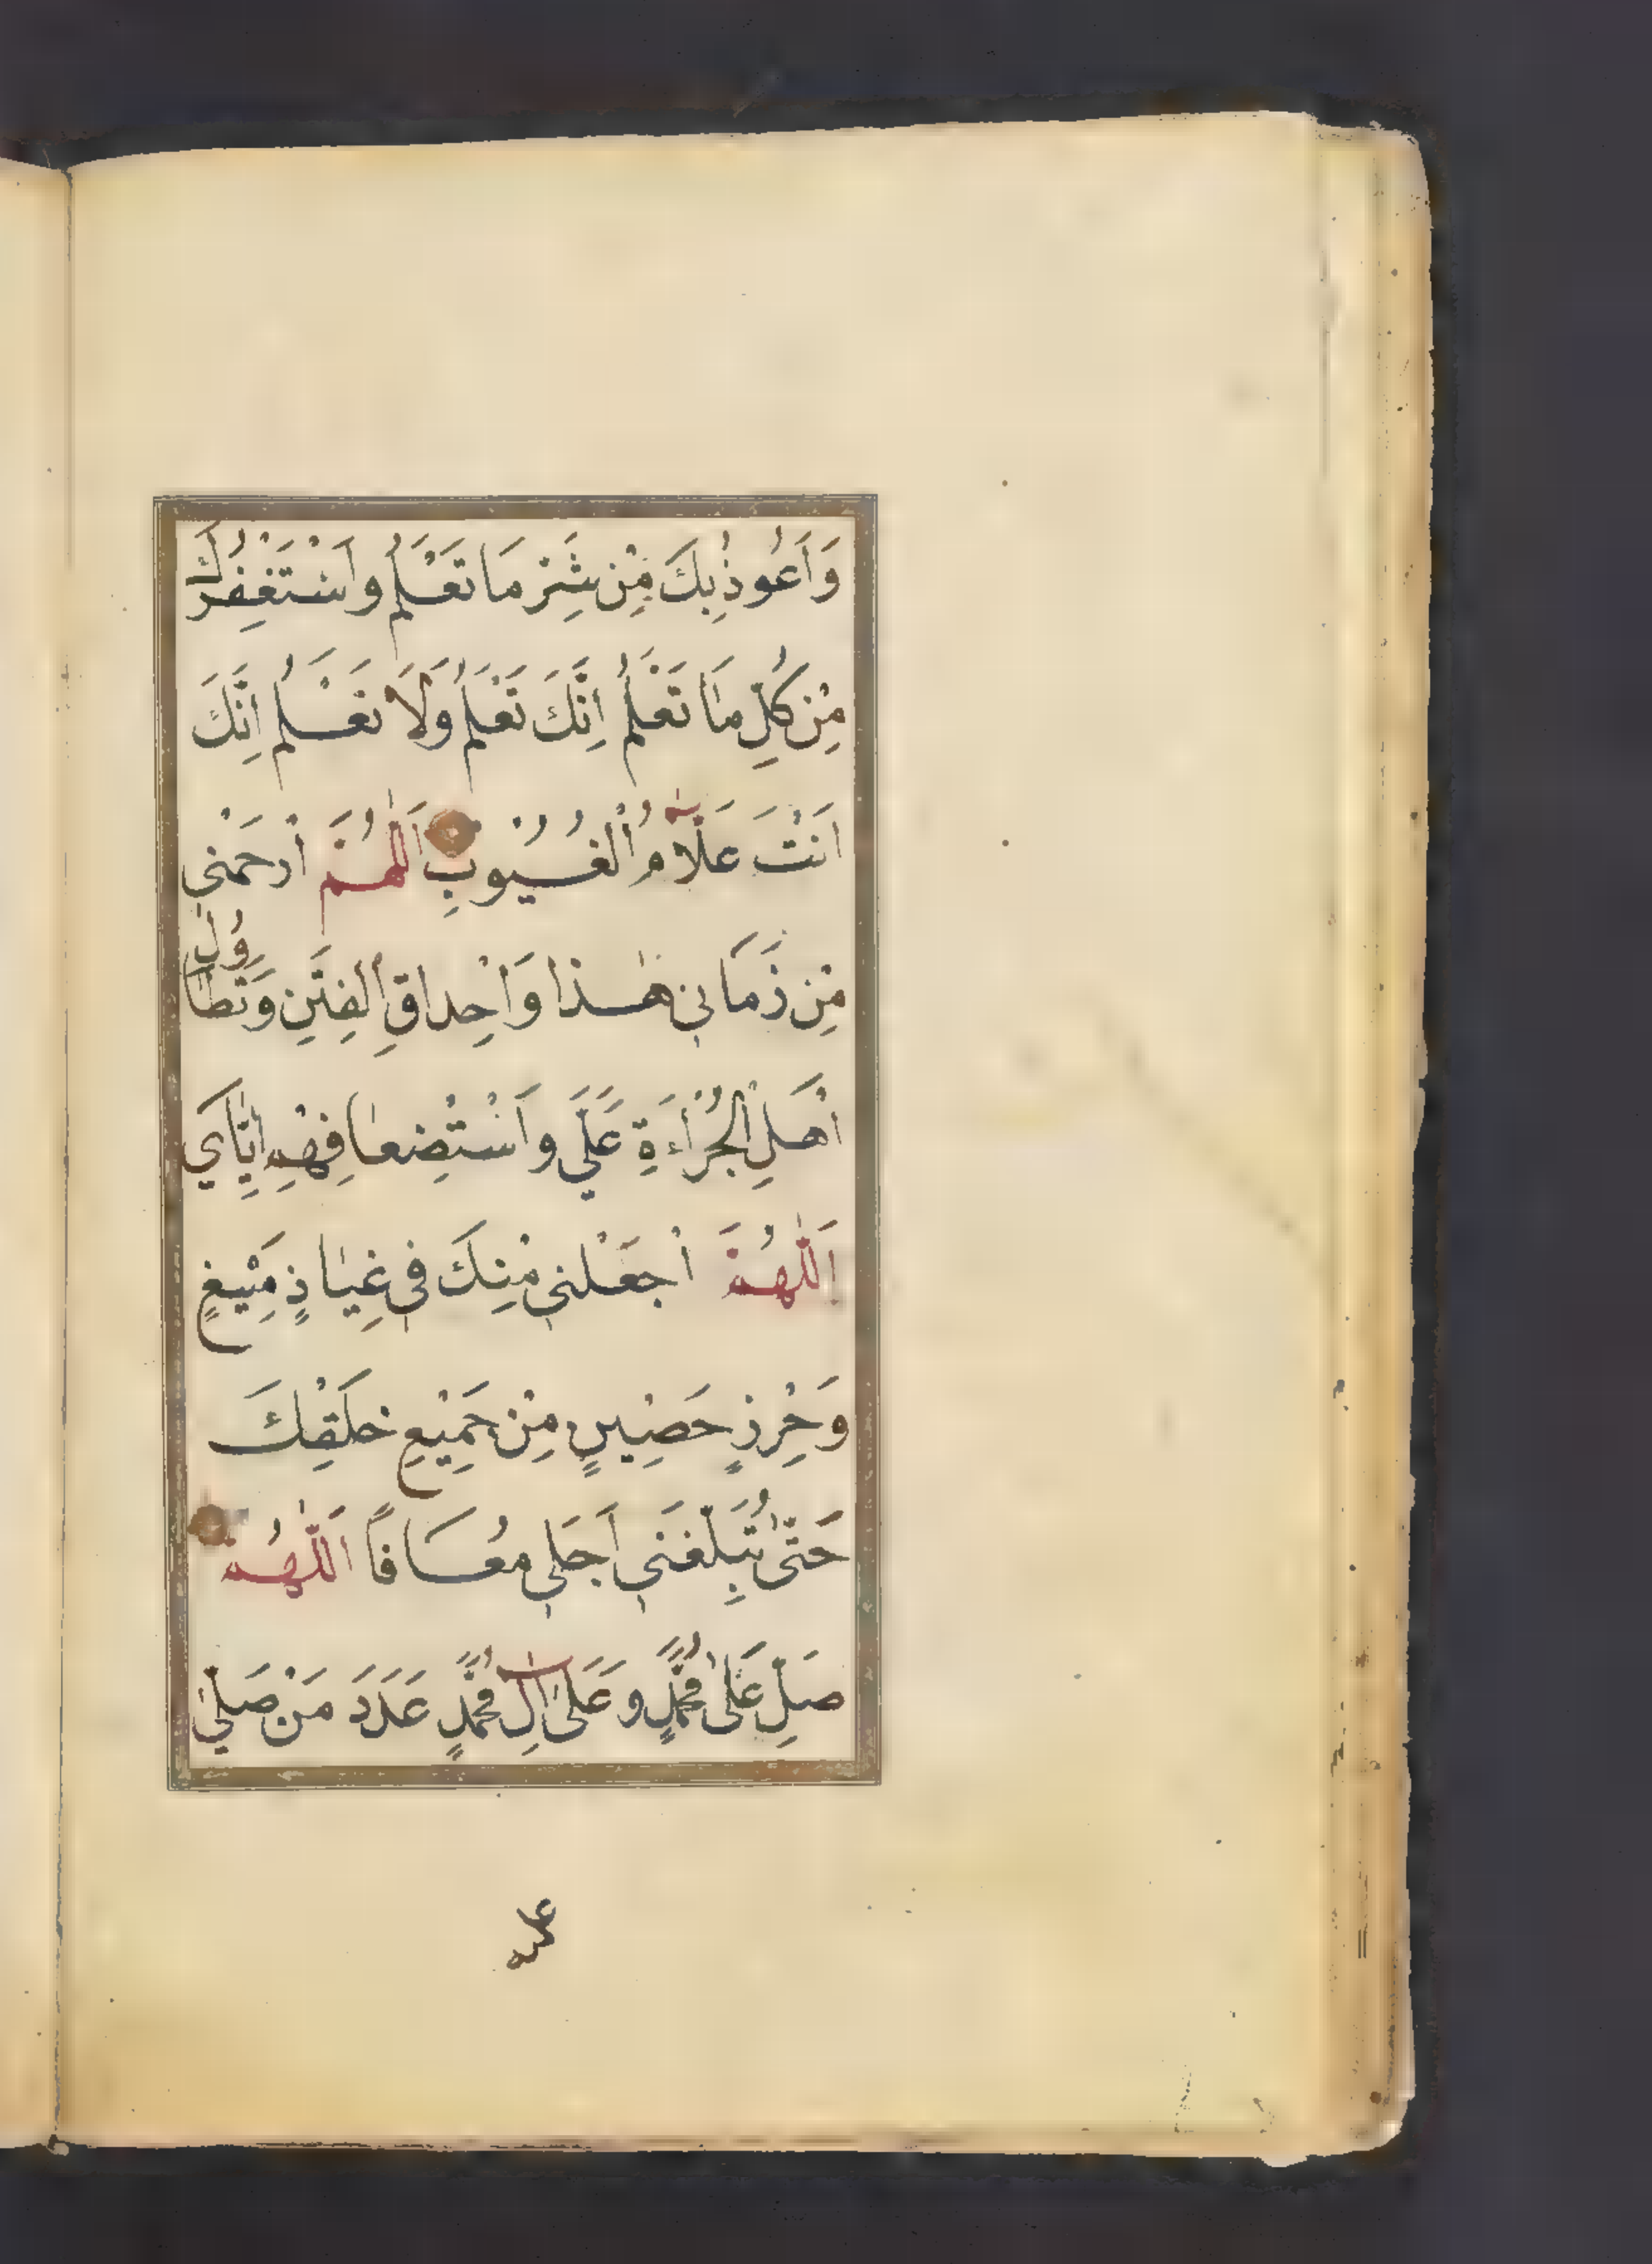 وَاَعُوذُبِكَ مِنْ شَرِّ مَا تَعْلَمُ وَاَسْتَغْفِرُكَ
مِنْ كُلِّ مَا تَعْلَمُ اِنَّكَ تَعْلَمُ وَلَا نَعْلَمُ اِنَّكَ
اَنْتَ عَلَّامُ الْغُيُوبِ اَللّٰهُمَّ ارْحَمْنِي
مِنْ زَمَانِي هٰذَا وَاِحْدَاقِ الْفِتَنِ وَتَطَاوُلِ
اَهْلِ الْجُرْأَةِ عَلَيَّ وَاسْتِضْعَافِهِمْ اِيَّايَ
اَللّٰهُمَّ اجْعَلْنِي مِنْكَ فِي عِيَاذٍ مَنِيعٍ
وَحِرْزٍ حَصِينٍ مِنْ جَمِيعِ خَلْقِكَ
حَتّٰى تُبَلِّغَنِي اَجَلِي مُعَافًا اَللّٰهُمَّ
صَلِّ عَلٰى مُحَمَّدٍ وَعَلٰى اٰلِ مُحَمَّدٍ عَدَدَ مَنْ صَلّٰى